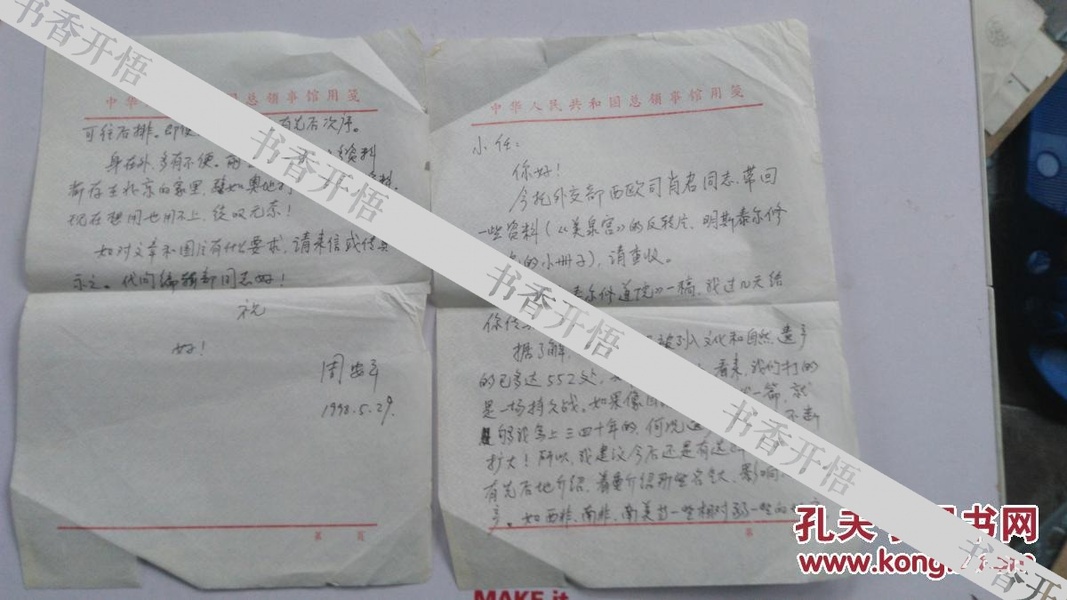 中华人民共和国总领事馆用笺
小任：
你好！
今托外交部西欧司肖君同志带回
一些资料（《美泉宫》的反转片、明斯泰尔修
的小册子），请查收。
泰尔修道院》一稿，我过几天结
你传
据了解，被列入文化和自然遗产
的已多达552处，看来，我们打的
是一场持久战。如果像目一篇，就
够我写上三四十年的，何况不断
扩大！所以，我建议今后还是有选
有先后地介绍，着重介绍那些名气大、影响
。如西非、南非、南美的一些相对弱一些的
第
中华国总领事馆用笺
可往后排。即使有先后次序。
身在外，多有不便。资料
都存在北京的家里，譬如奥地
现在想用也用不上，徒叹无奈！
如对文章和图片有什么要求，请来信或传真
示之。代问编辑部同志好！
祝
好！
周
1998.5.29.
第 页
书香开悟
书香开悟
书香开悟
书香开悟
书香开悟
孔夫子旧书网
www.kongfz.com
MAKE it